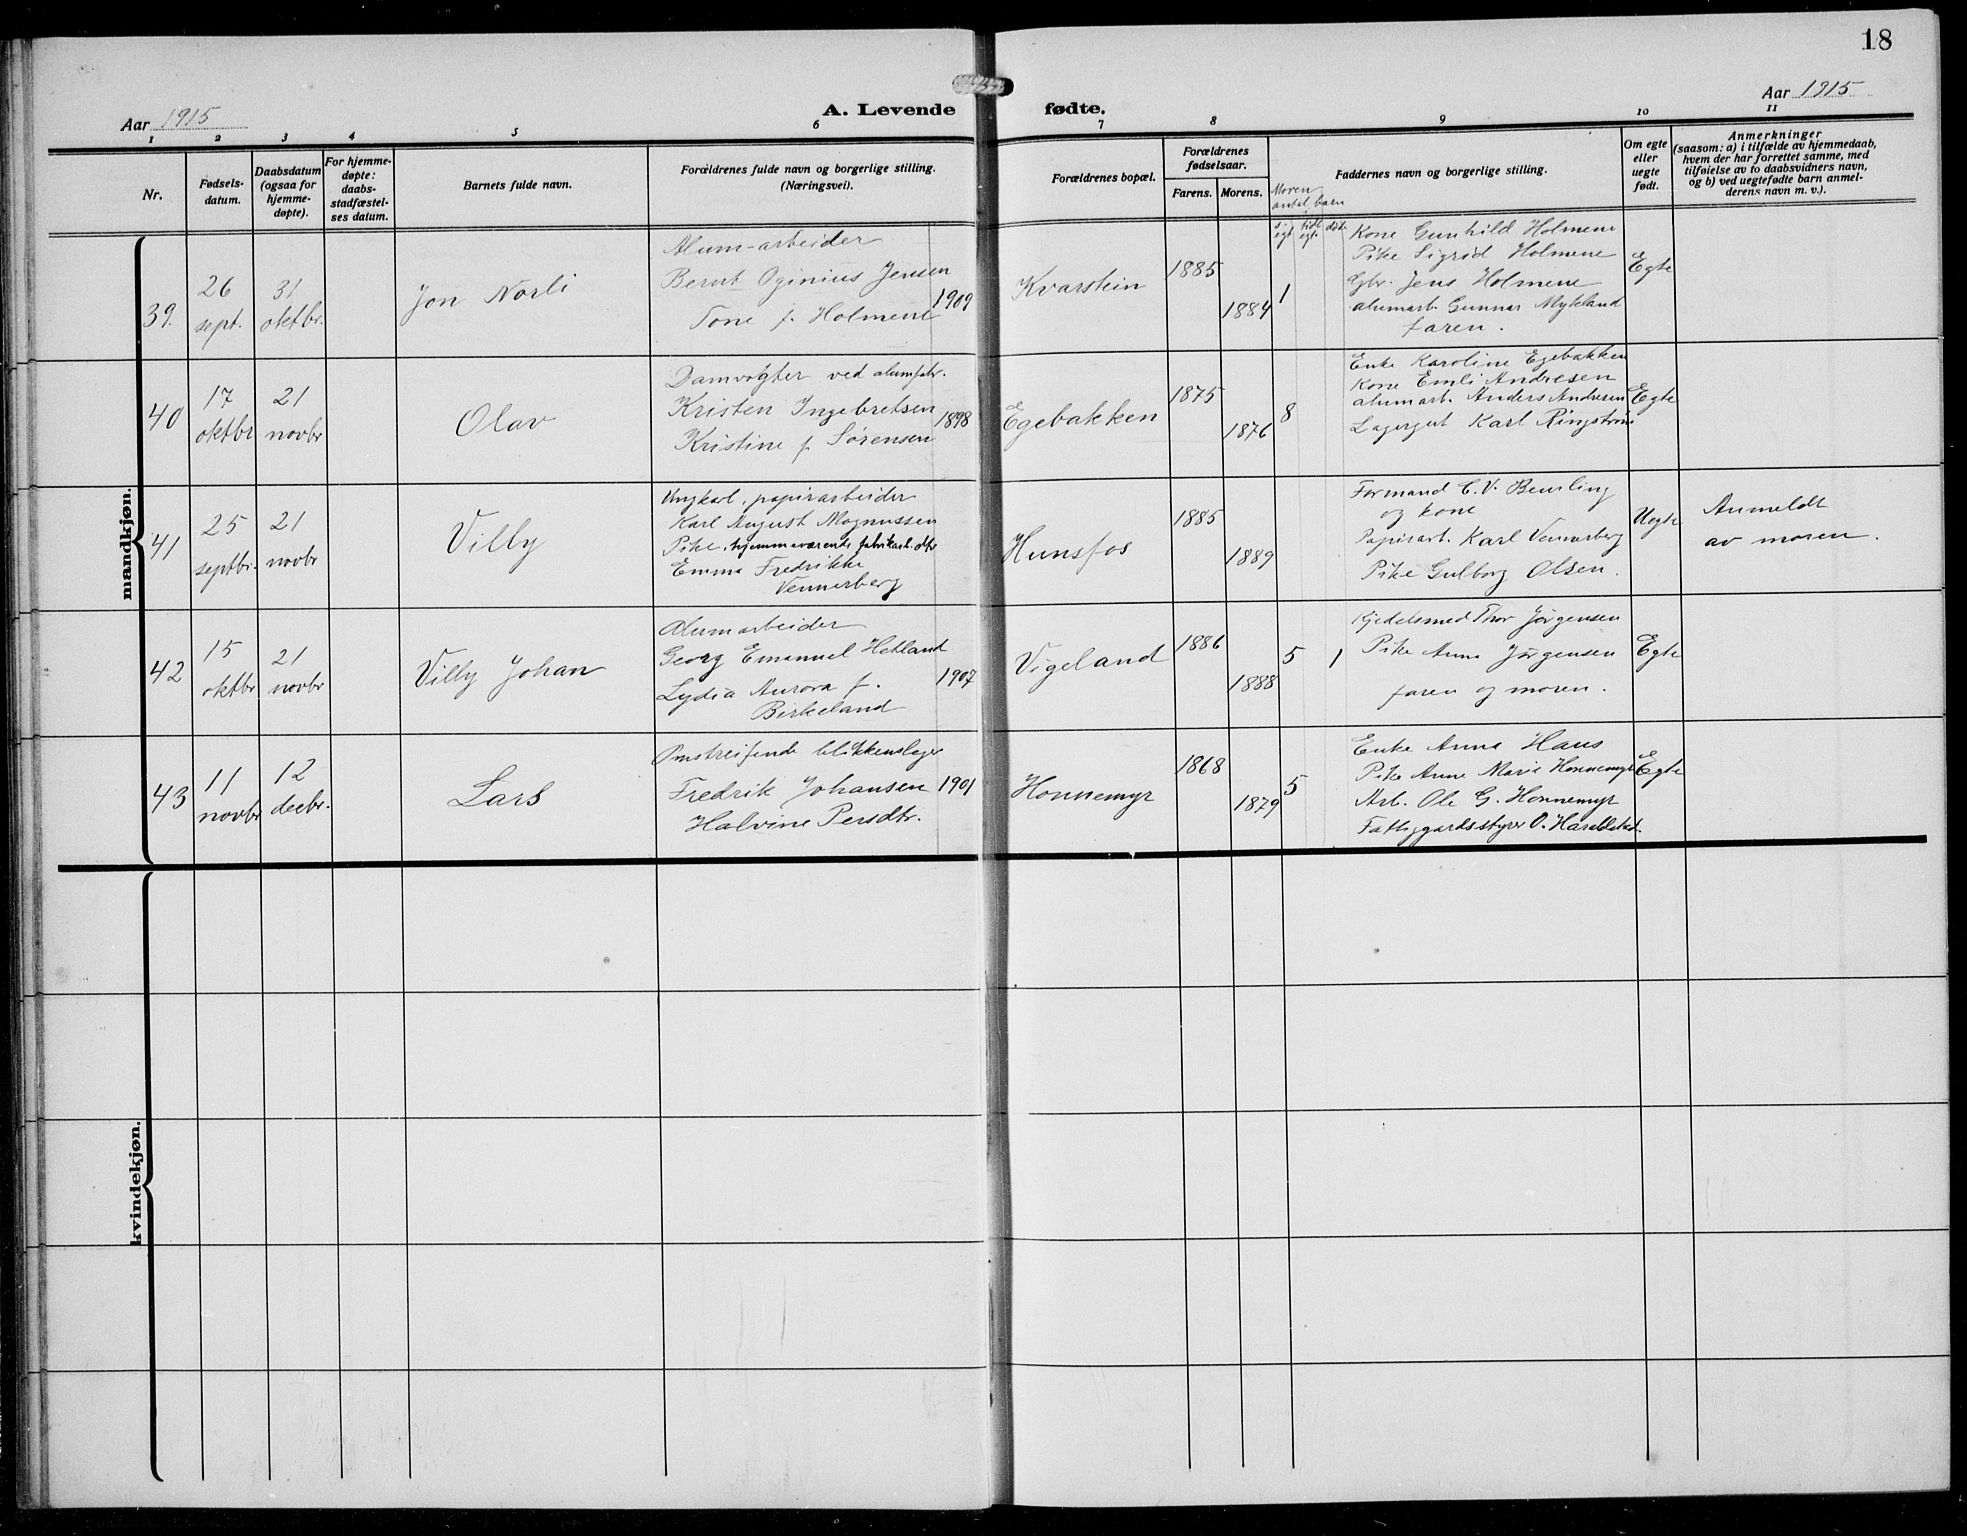 18
Aar 1915
A. Levende fødte.
Aar 1915
1 2 3 4 5 6 7 8 9 10 11
Nr.
Fødsels-
datum.
Daabsdatum
(ogsaa for
hjemme-
døpte).
For hjemme-
døpte:
daabs-
stadfæstel-
ses datum.
Barnets fulde navn.
Forældrenes fulde navn og borgerlige stilling.
(Næringsvei).
Forældrenes bopæl.
Forældrenes
fødselsaar.
Farens. Morens.
Moren
antal barn
Faddernes navn og borgerlige stilling.
Om egte
eller
uegte
født.
Anmerkninger
(saasom: a) i tilfælde av hjemmedaab,
hvem der har forrettet samme, med
tilføielse av to daabsvidners navn,
og b) ved uegtefødte barn anmel-
derens navn m. v.).
mandkjøn.
39.
26
sept.
31
oktbr.
Jon Norli
Alum-arbeider
Bernt Oginius Jensen
Tone f. Holmene
1909
Kvarstein
1885
1884
1
Kone Gunhild Holmene
Pike Sigrid Holmene
Gbr. Jens Holmene
alumarb. Gunnar Mykland
faren.
Egte
40
17
oktbr
21
novbr
Olav
Damvogter ved alumfabr.
Kristen Ingebretsen
Kristine f. Sørensen
1898
Egebakken
1875
1876
8
Enke Karoline Egebakken
Kone Emli Andresen
alumarb. Anders Andresen
Lagergut Karl Ringstrøm
Egte
41
25
septbr.
21
novbr
Villy
Ungkarl, papirarbeider
Karl August Magnussen
Pike, hjemmeværende fabrikarb. dtr
Emma Fredrikke
Vennerberg
Hunsfos
1885
1889
Formand C. V. Beurling
og kone
Papirarb. Karl Vennerberg
Pike Gulborg Olsen.
Uegte
Anmeldt
av moren.
42
15
oktbr
21
novbr
Villy Johan
Alumarbeider
Georg Emanuel Hetland
Lydia Aurora f.
Birkeland
1907
Vigeland
1886
1888
5
1
Kjedelsmed Thor Jørgensen
Pike Anna Jørgensen
faren og moren.
Egte
43
11
novbr
12
decbr.
Lars
Omstreifende blikkenslager
Fredrik Johansen
Halvine Persdtr.
1901
Honnemyr
1868
1879
5
Enke Anna Haus
Pike Anne Marie Honnemyr
Arb. Ole G. Honnemyr
Fattiggardsstyrer O. Haraldstad.
Egte
kvindekjøn.